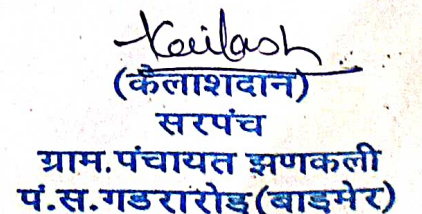 Kailash
(कैलाशदान)
सरपंच
ग्राम.पंचायत झणकली
पं.स.गडरारोड(बाडमेर)